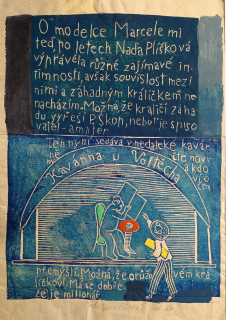 O modelce Marcele mi
teď po letech Naďa Plíšková
vyprávěla různé zajímavé in
timnosti, avšak souvislost mezi
nimi a záhadným králíčkem ne
nacházím. Možná že králičí záha
du vyřeší P. Škon, neboť je spiso
vatel-amatér
Ten nyní sedává v nedaleké kavár
ně
Kavárna u Vojtěcha
čte novi
ny
a kdo
ví o
čem
přemýšlí. Možná, že o růžovém krá
líkovi. Má se dobře,
že je milionář